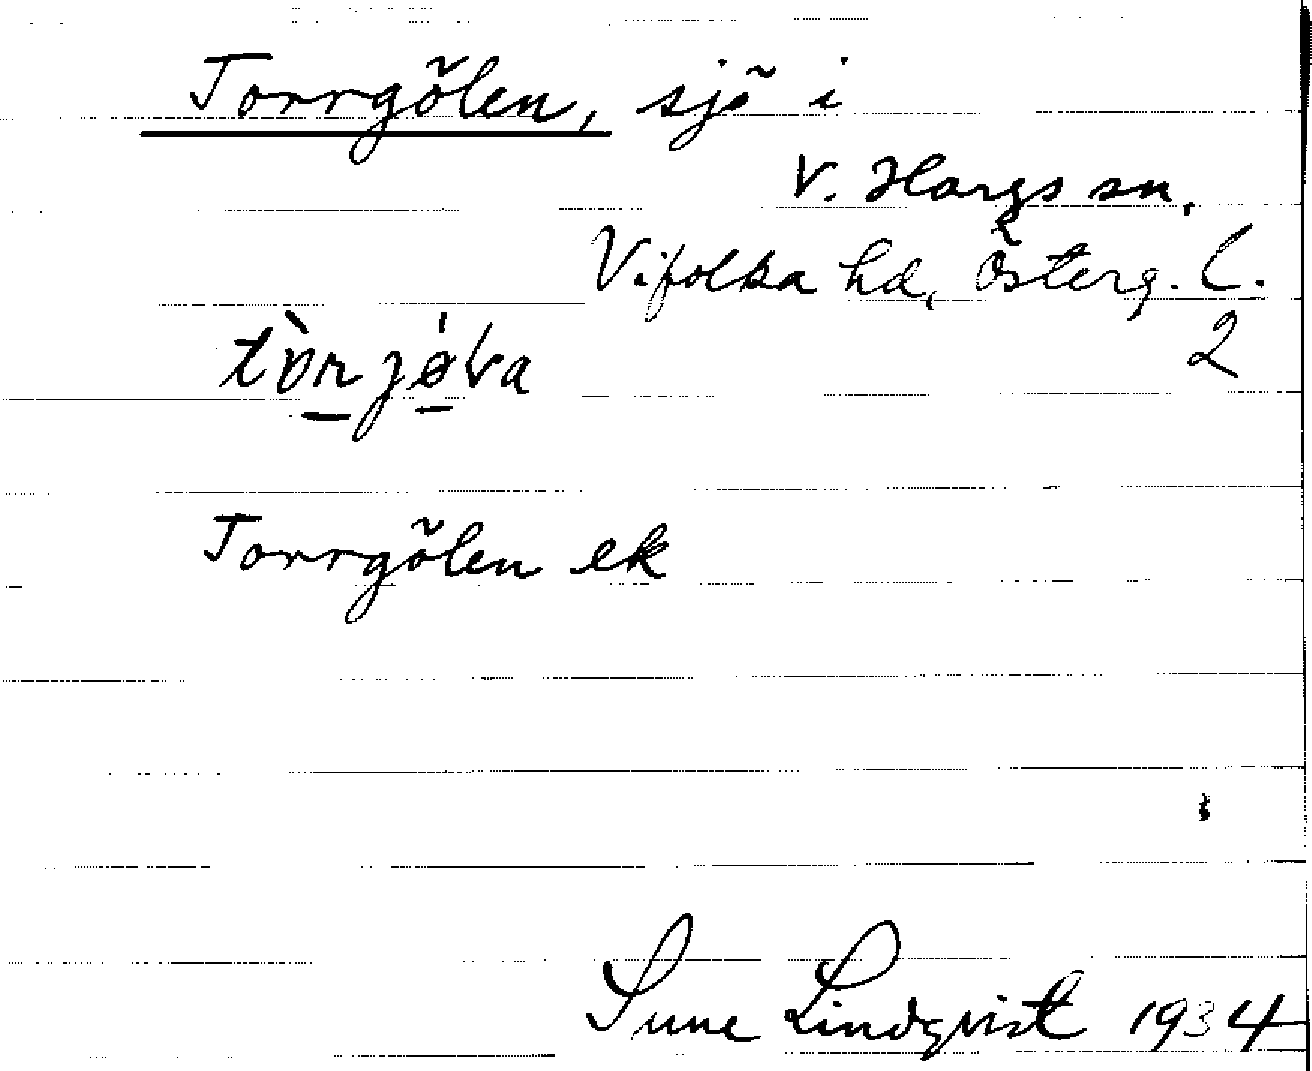 Torrgölen, sjö i
V. Hargs sn.
Vifolka hd, Österg. l.
2
Torrgölen ek
Sune Lindqvist 1934